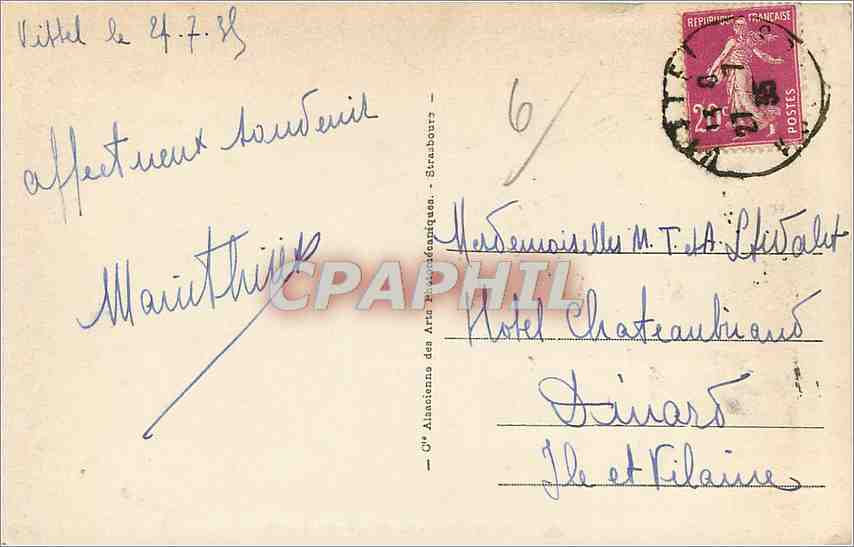 Vittel le 27.7.35
affectueux souvenir
6
REPUBLIQUE FRANÇAISE
20c
POSTES
27 7
35
CPAPHIL
— Cie Alsacienne des Arts Photomécaniques. - Strasbourg —
Mesdemoiselles M. T. et A.
Hotel Chateaubriand
Dinard
Ile et Vilaine